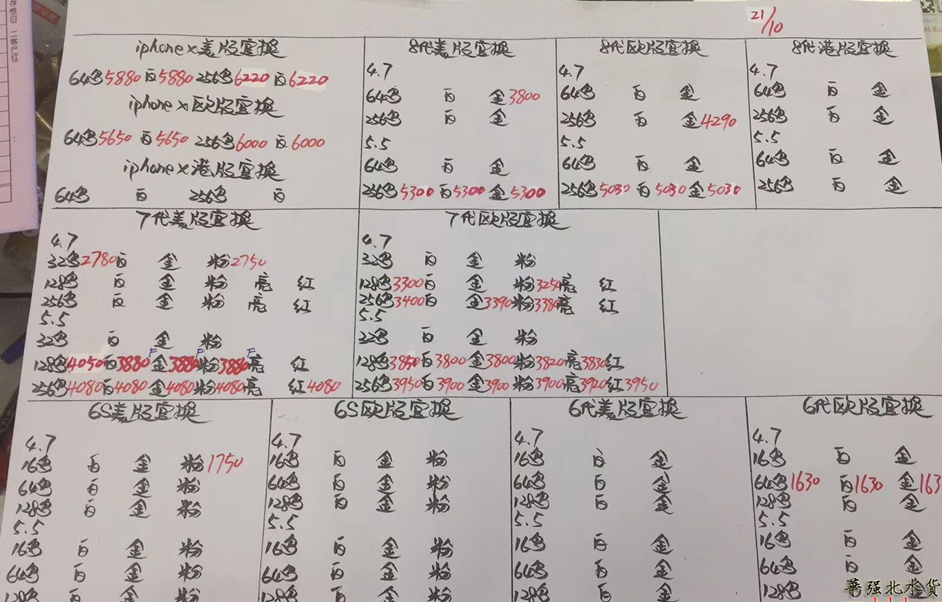 21/10
iphone x美版官换
64色5880白5880 256色6220白6220
iphone x欧版官换
64色5650白5650 256色6000白6000
iphone x港版官换
64色 白 256色 白
8代美版官换
4.7
64色 白 金3800
256色 白 金
5.5
64色 白 金
256色5300白5300金5300
8代欧版官换
4.7
64色 白 金
256色 白 金4290
5.5
64色 白 金
256色5030白5030金5030
8代港版官换
4.7
64色 白 金
256色 白 金
5.5
64色 白 金
256色 白 金
7代美版官换
4.7
32色2780白 金 粉2750
128色 白 金 粉 亮 红
256色 白 金 粉 亮 红
5.5
32色 白 金 粉
128色4050白3880金3880粉3880亮 红
256色4080白4080金4080粉4080亮 红4080
7代欧版官换
4.7
32色 白 金 粉
128色3300白 金 粉3250亮 红
256色3400白 金3390粉3380亮 红
5.5
32色 白 金 粉
128色3850白3800金3800粉3820亮3830红
256色3950白3900金3900粉3900亮3920红3950
6S美版官换
4.7
16色 白 金 粉1750
64色 白 金 粉
128色 白 金 粉
5.5
16色 白 金 粉
64色 白 金 粉
128色 白 金 粉
6S欧版官换
4.7
16色 白 金 粉
64色 白 金 粉
128色 白 金 粉
5.5
16色 白 金 粉
64色 白 金 粉
128色 白 金 粉
6代美版官换
4.7
16色 白 金
64色 白 金
128色 白 金
5.5
16色 白 金
64色 白 金
128色 白 金
6代欧版官换
4.7
16色 白 金
64色1630 白1630 金163
128色 白 金
5.5
16色 白 金
64色 白 金
128色 白
华强北水货